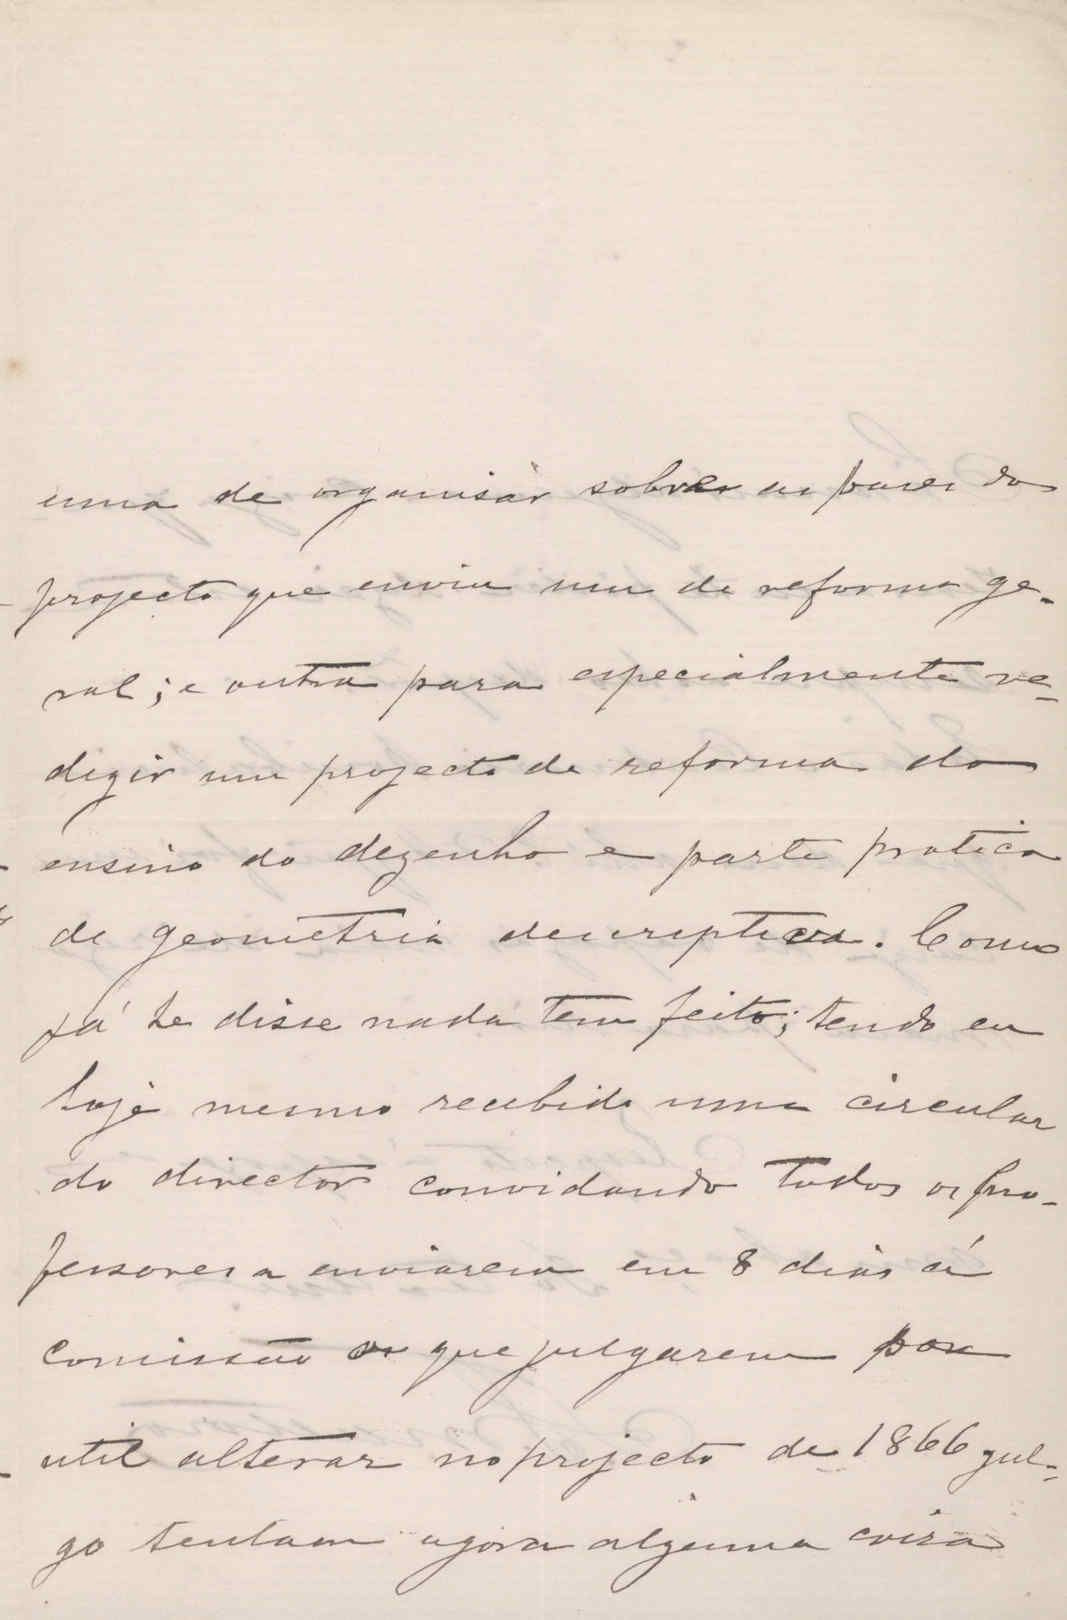 uma de organisar sobre as bases do
projecto que enviu um de reforma ge-
ral; e outra para especialmente re-
digir um projecto de reforma do
ensino do dezenho e parte pratica
de geometria descriptiva. Como
já te disse nada tem feito; tendo eu
hoje mesmo recebido uma circular
do director convidando todos os pro-
fessores a enviarem em 8 dias á
comissão o que julgarem
util alterar no projecto de 1866 jul-
go tentam agora alguma coisa